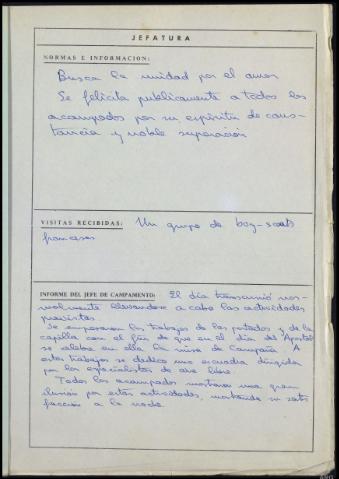 JEFATURA
NORMAS E INFORMACION:
Busca la unidad por el amor
Se felicita publicamente a todos los
acampados por su espíritu de cons-
tancia y noble superación
VISITAS RECIBIDAS: Un grupo de boy-scouts
franceses
INFORME DEL JEFE DE CAMPAMENTO: El día transcurrió nor-
malmente llevandose a cabo las actividades
previstas.
Se empezaron los trabajos de las portadas y de la
capilla con el fin de que en el día del Apostol
se celebre en ella la misa de Campaña. A
estos trabajos se dedico una escuadra dirigida
por los especialistas de aire libre.
Todos los acampados mostraron una gran
ilusion por estas actividades, notandose su satis
faccion a la noche.